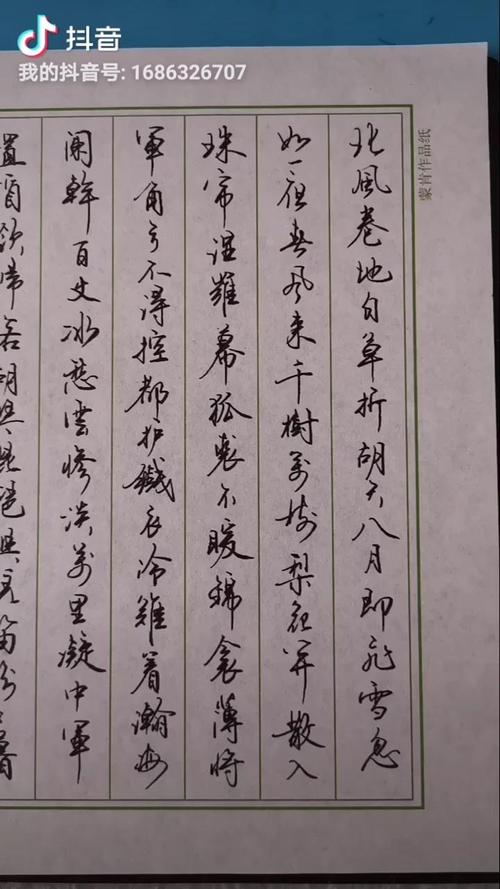 抖音
我的抖音号: 1686326707
蒙肯作品纸
北風卷地白草折胡天八月即飛雪忽
如一夜春风来千樹萬树梨花開散入
珠帘湿羅幕狐裘不暖錦衾薄将
軍角弓不得控都护鐵衣冷難着瀚海
闌幹百丈冰愁雲惨淡萬里凝中軍
置酒飲帰客胡琴琵琶與羌笛紛紛暮